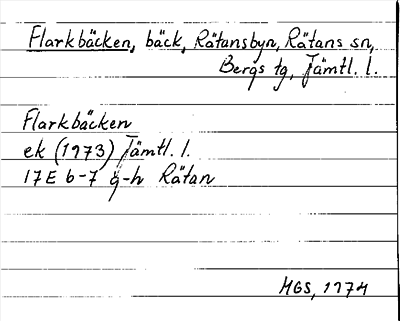 Flarkbäcken, bäck, Rätansbyn, Rätans sn,
Bergs tg, Jämtl. l.
Flarkbäcken
ek (1973) Jämtl. l.
17E 6-7 g-h Rätan
MGS, 1974